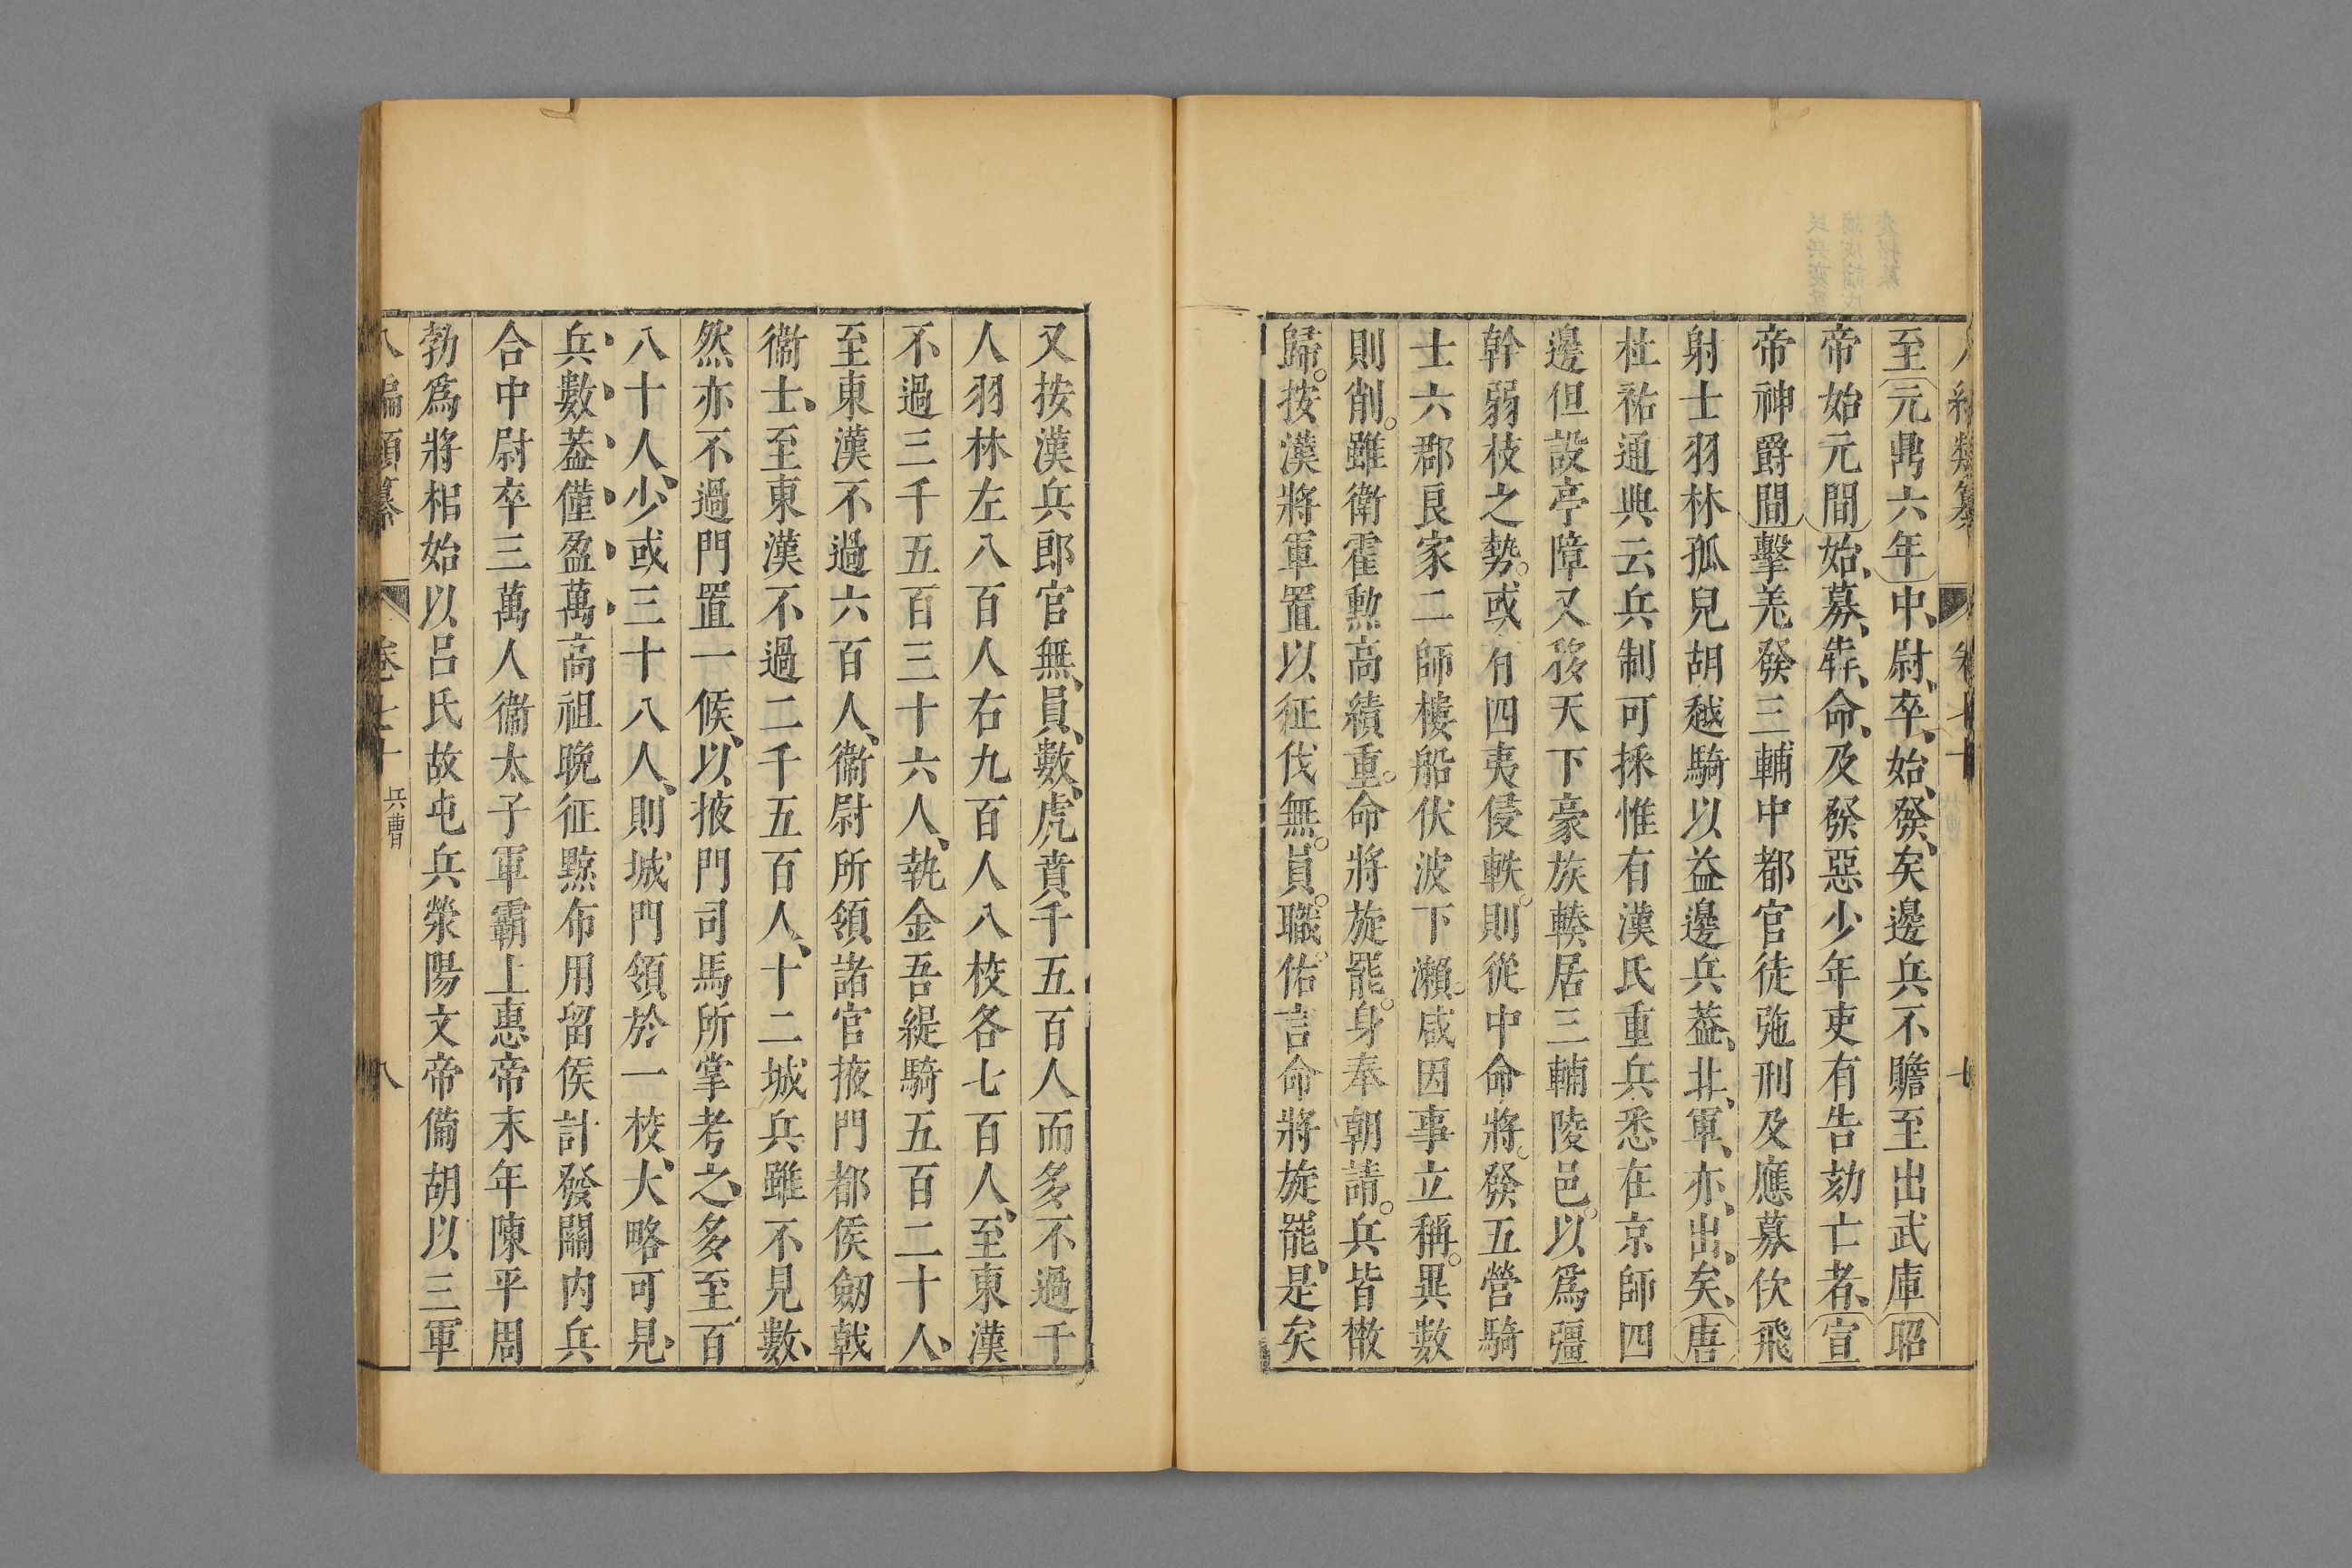 至元鼎六年中尉卒始發矣邊兵不贍至出武庫昭
帝始元間始募犇命及發惡少年吏有告劾亡者宣
帝神爵間擊羌發三輔中都官徒弛刑及應募佽飛
射士羽林孤兒胡越騎以益邊兵葢北軍亦出矣唐
杜祐通典云兵制可採惟有漢氏重兵悉在京師四
邊但設亭障又移天下豪族輳居三輔陵邑以爲彊
幹弱枝之勢或有四夷侵軼則從中命將發五營騎
士六郡良家二師樓船伏波下瀨咸因事立稱畢數
則削雖衛霍勲高績重命將旋罷身奉朝請兵皆散
歸按漢將軍置以征伐無員職佑言命將旋罷是矣
又按漢兵郎官無員數虎賁千五百人而多不過千
人羽林左八百人右九百人八校各七百人至東漢
不過三千五百三十六人執金吾緹騎五百二十人
至東漢不過六百人衞尉所領諸官掖門都侯劒戟
衞士至東漢不過二千五百人十二城兵雖不見數
然亦不過門置一候以掖門司馬所掌考之多至百
八十人少或三十八人則城門領於一校大略可見
兵數葢僅盈萬高祖晚征黥布用留侯計發關內兵
合中尉卒三萬人衞太子軍霸上惠帝末年陳平周
勃爲將相始以呂氏故屯兵滎陽文帝備胡以三軍
八編類纂 卷七十 兵曹 八